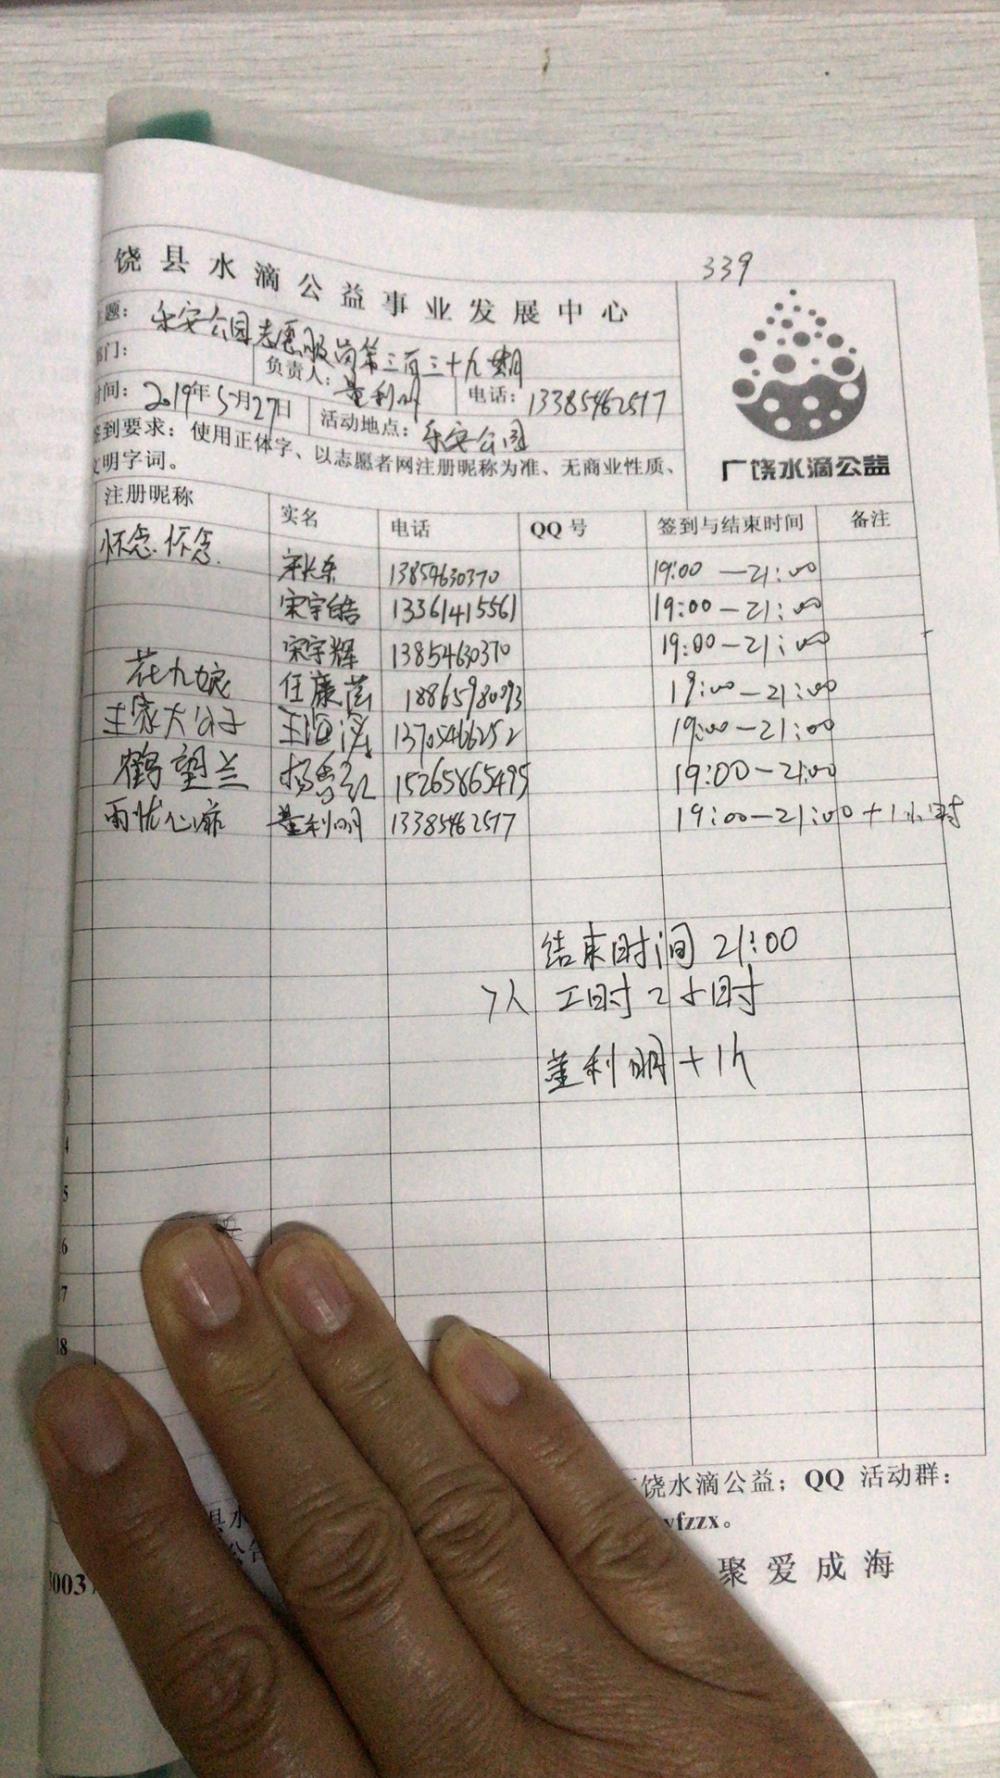 339
饶县水滴公益事业发展中心
题：乐安公园志愿服岗第三百三十九期
部门：
负责人：董利明 电话：13385462517
时间：2019年5月27日 活动地点：乐安公园
签到要求：使用正体字、以志愿者网注册昵称为准、无商业性质、
文明字词。
广饶水滴公益
注册昵称 实名 电话 QQ号 签到与结束时间 备注
怀念.怀念. 宋长东 13854630370 19:00—21:00
宋宇皓 13361415561 19:00—21:00
宋宇辉 13854630370 19:00—21:00
花九娘 任康 18865980093 19:00—21:00
王家大公子 王海 13705466252 19:00—21:00
鹤望兰 杨 15265865495 19:00—21:00
雨忧心 董利明 13385462517 19:00—21:00+1小时
结束时间 21:00
7人 工时2小时
董利明+1h
5
6
7
18
饶水滴公益；QQ 活动群：
县水
yfzzx。
公告
聚爱成海
0037